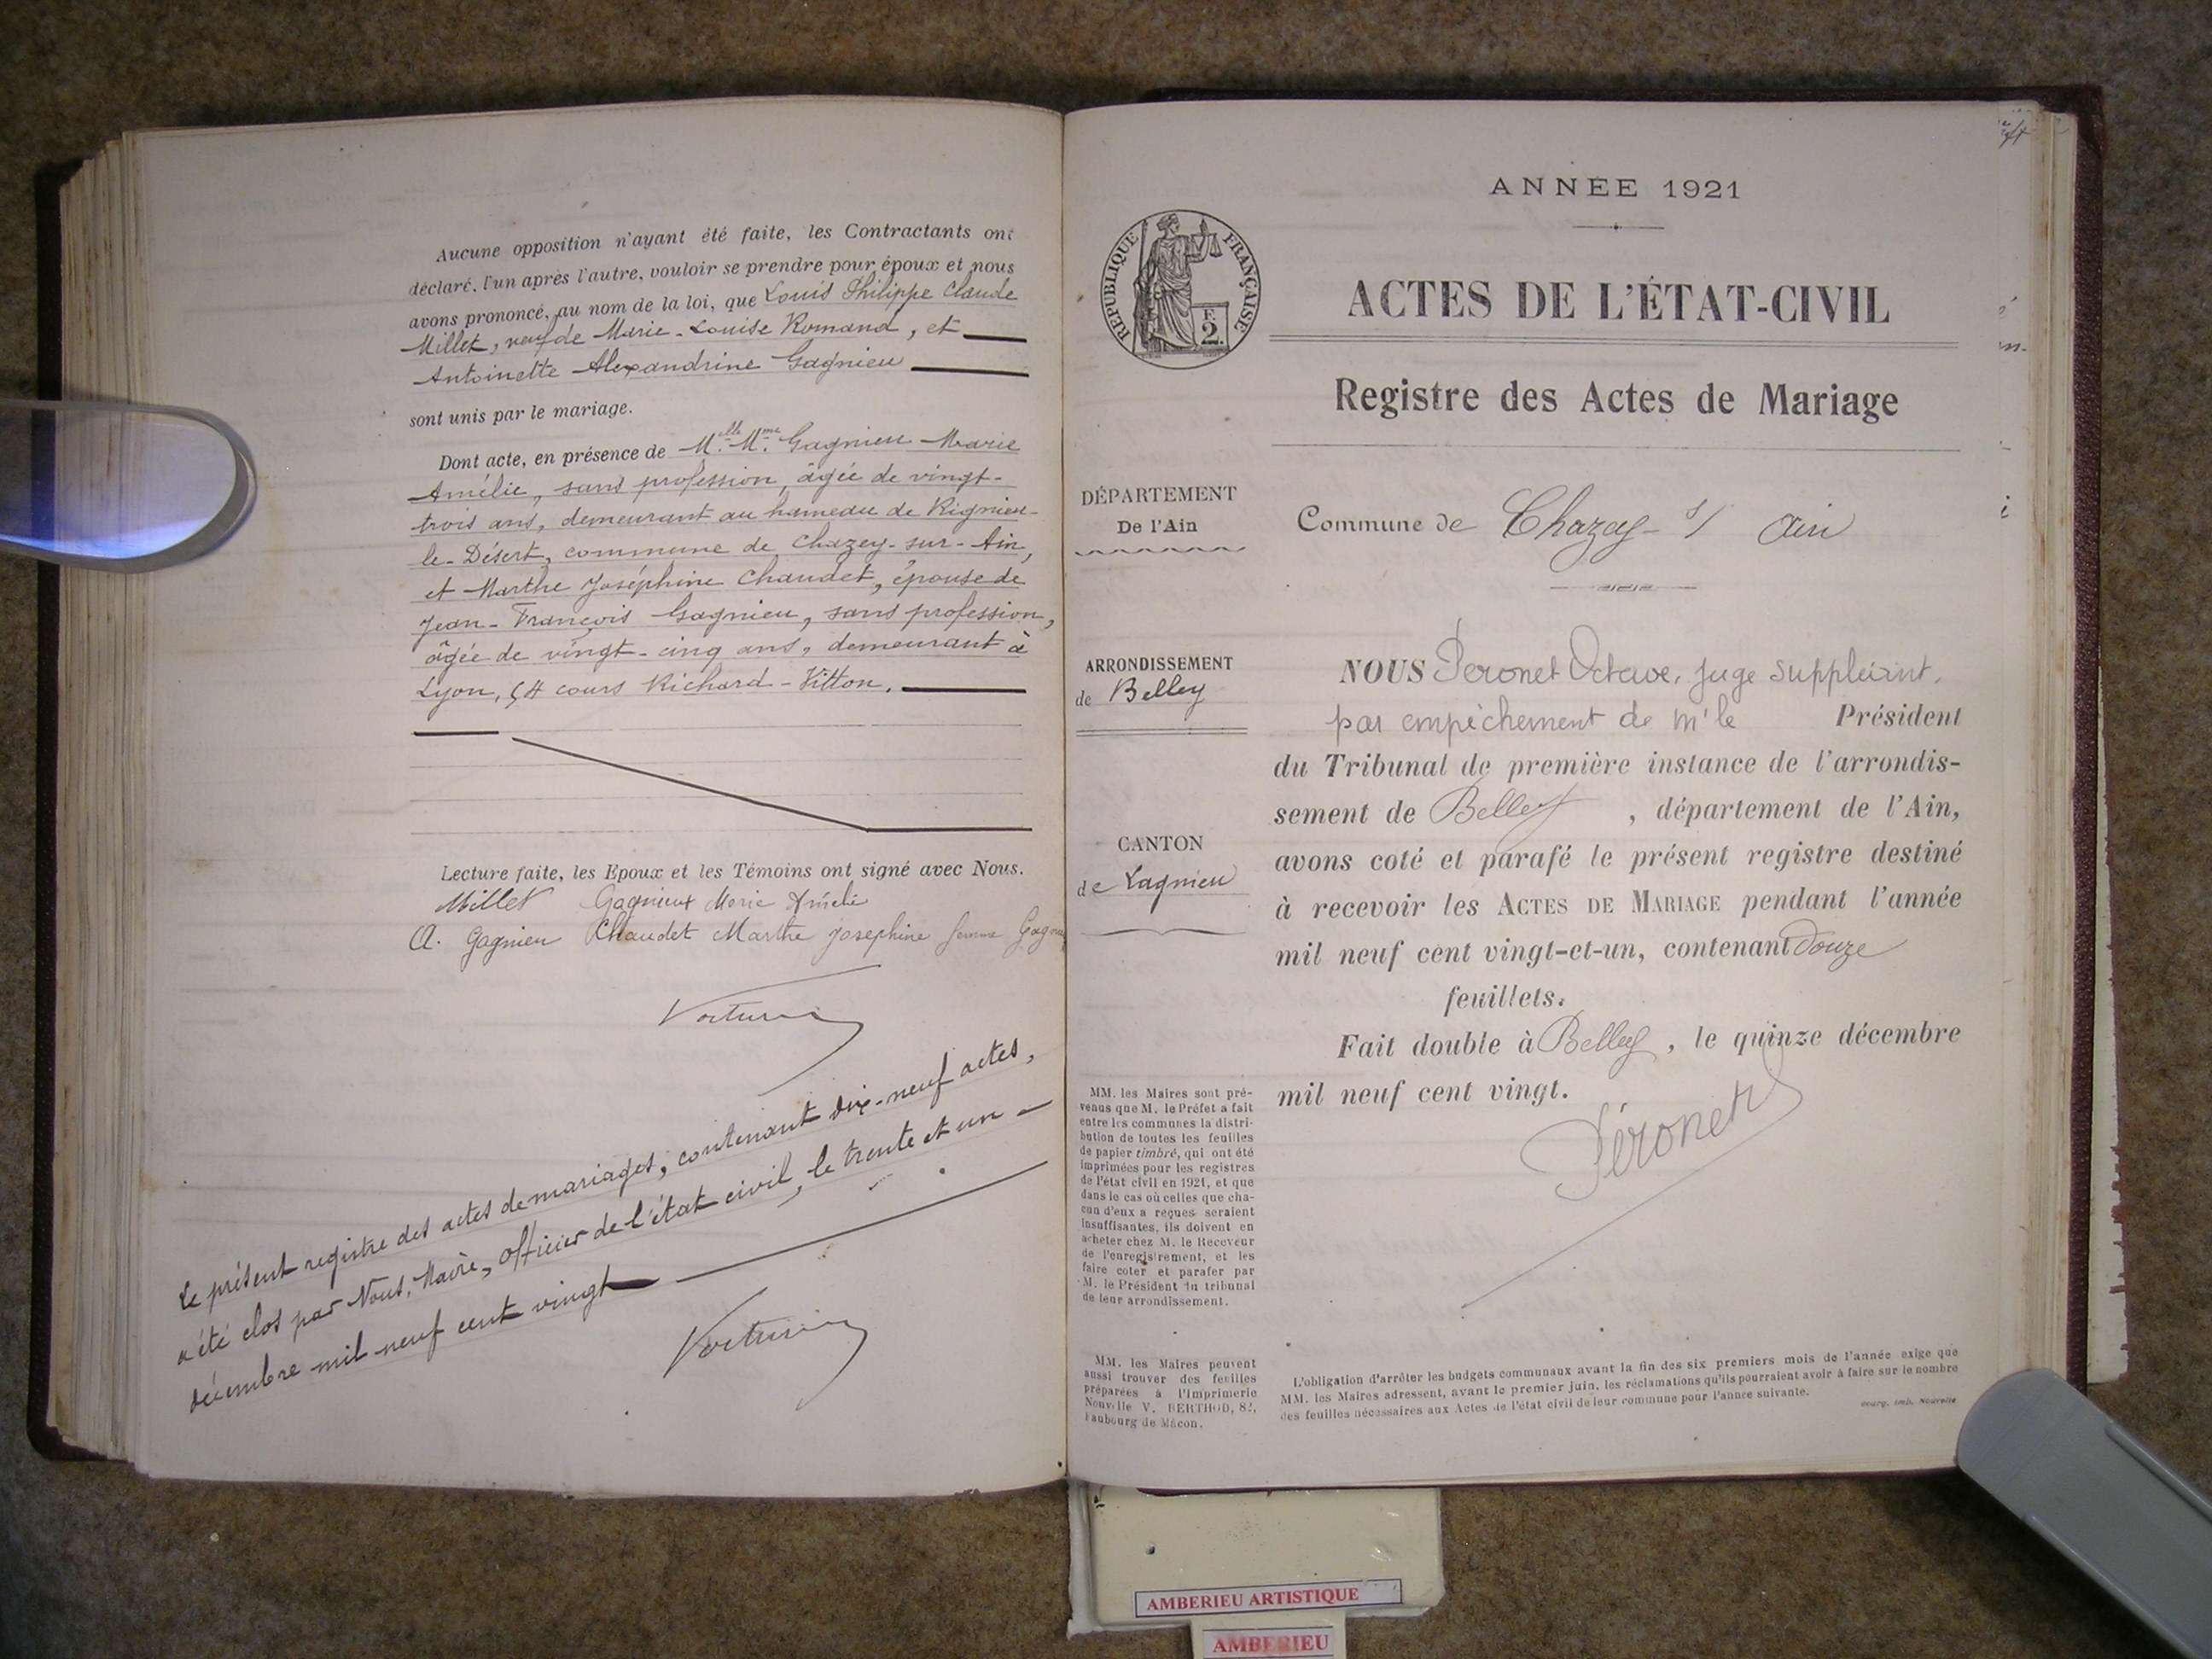 Aucune opposition n'ayant été faite, les Contractants ont
déclaré, l'un après l'autre, vouloir se prendre pour époux et nous
avons prononcé, au nom de la loi, que Louis Philippe Claude
Millet, veuf de Marie-Louise Romand, et
Antoinette Alexandrine Gagnieu
sont unis par le mariage.
Dont acte, en présence de Melle. Mme. Gagnieu Marie
Amélie, sans profession, âgée de vingt-
trois ans, demeurant au hameau de Rignieu-
le-Désert, commune de Chazey-sur-Ain,
et Marthe Joséphine Chaudet, épouse de
Jean-François Gagnieu, sans profession,
âgée de vingt-cinq ans, demeurant à
Lyon, 54 cours Richard-Vitton.
Lecture faite, les Epoux et les Témoins ont signé avec Nous.
Millet Gagnieux Marie Amélie
A. Gagnieu Chaudet Marthe josephine femme
Le présent registre des actes de mariages, contenant dix-neuf actes,
a été clos par Nous, Maire, officier de l'état civil, le trente et un
décembre mil neuf cent vingt
ANNÉE 1921
RÉPUBLIQUE FRANÇAISE
F.
2.
ACTES DE L'ÉTAT-CIVIL
Registre des Actes de Mariage
DÉPARTEMENT
De l'Ain
Commune de Chazey-s/ Ain
ARRONDISSEMENT
de Belley
CANTON
de Lagnieu
NOUS Péronet Octave, juge suppléant,
par empêchement de Mr le Président
du Tribunal de première instance de l'arrondis-
sement de Belley, département de l'Ain,
avons coté et parafé le présent registre destiné
à recevoir les ACTES DE MARIAGE pendant l'année
mil neuf cent vingt-et-un, contenant Douze
feuillets.
Fait double à Belley, le quinze décembre
mil neuf cent vingt.
Péronet
MM. les Maires sont pré-
venus que M. le Préfet a fait
entre les communes la distri-
bution de toutes les feuilles
de papier timbré, qui ont été
imprimées pour les registres
de l'état civil en 1921, et que
dans le cas où celles que cha-
cun d'eux a reçues seraient
insuffisantes, ils doivent en
acheter chez M. le Receveur
de l'enregistrement, et les
faire coter et parafer par
M. le Président du tribunal
de leur arrondissement.
MM. les Maires peuvent
aussi trouver des feuilles
préparées à l'Imprimerie
Nouvelle V. BERTHOD,
Faubourg de Mâcon.
L'obligation d'arrêter les budgets communaux avant la fin des six premiers mois de l'année exige que
MM. les Maires adressent, avant le premier juin, les réclamations qu'ils pourraient avoir à faire sur le nombre
des feuilles nécessaires aux Actes de l'état civil de leur commune pour l'année suivante.
Bourg, Imp. Nouvelle
AMBERIEU ARTISTIQUE
AMBERIEU